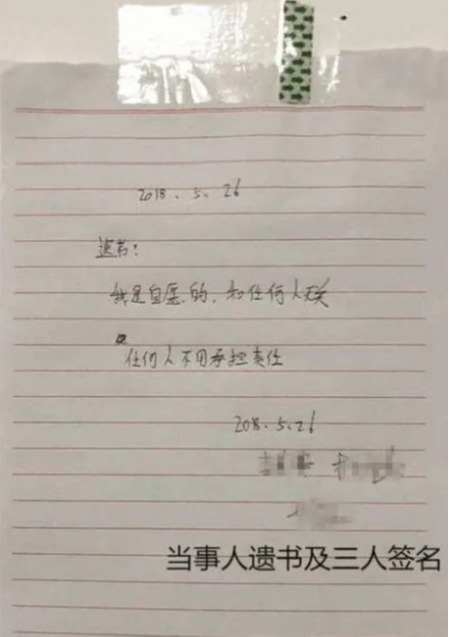 2018.5.26
遗书：
我是自愿的，和任何人无关
任何人不用承担责任
2018.5.26
当事人遗书及三人签名